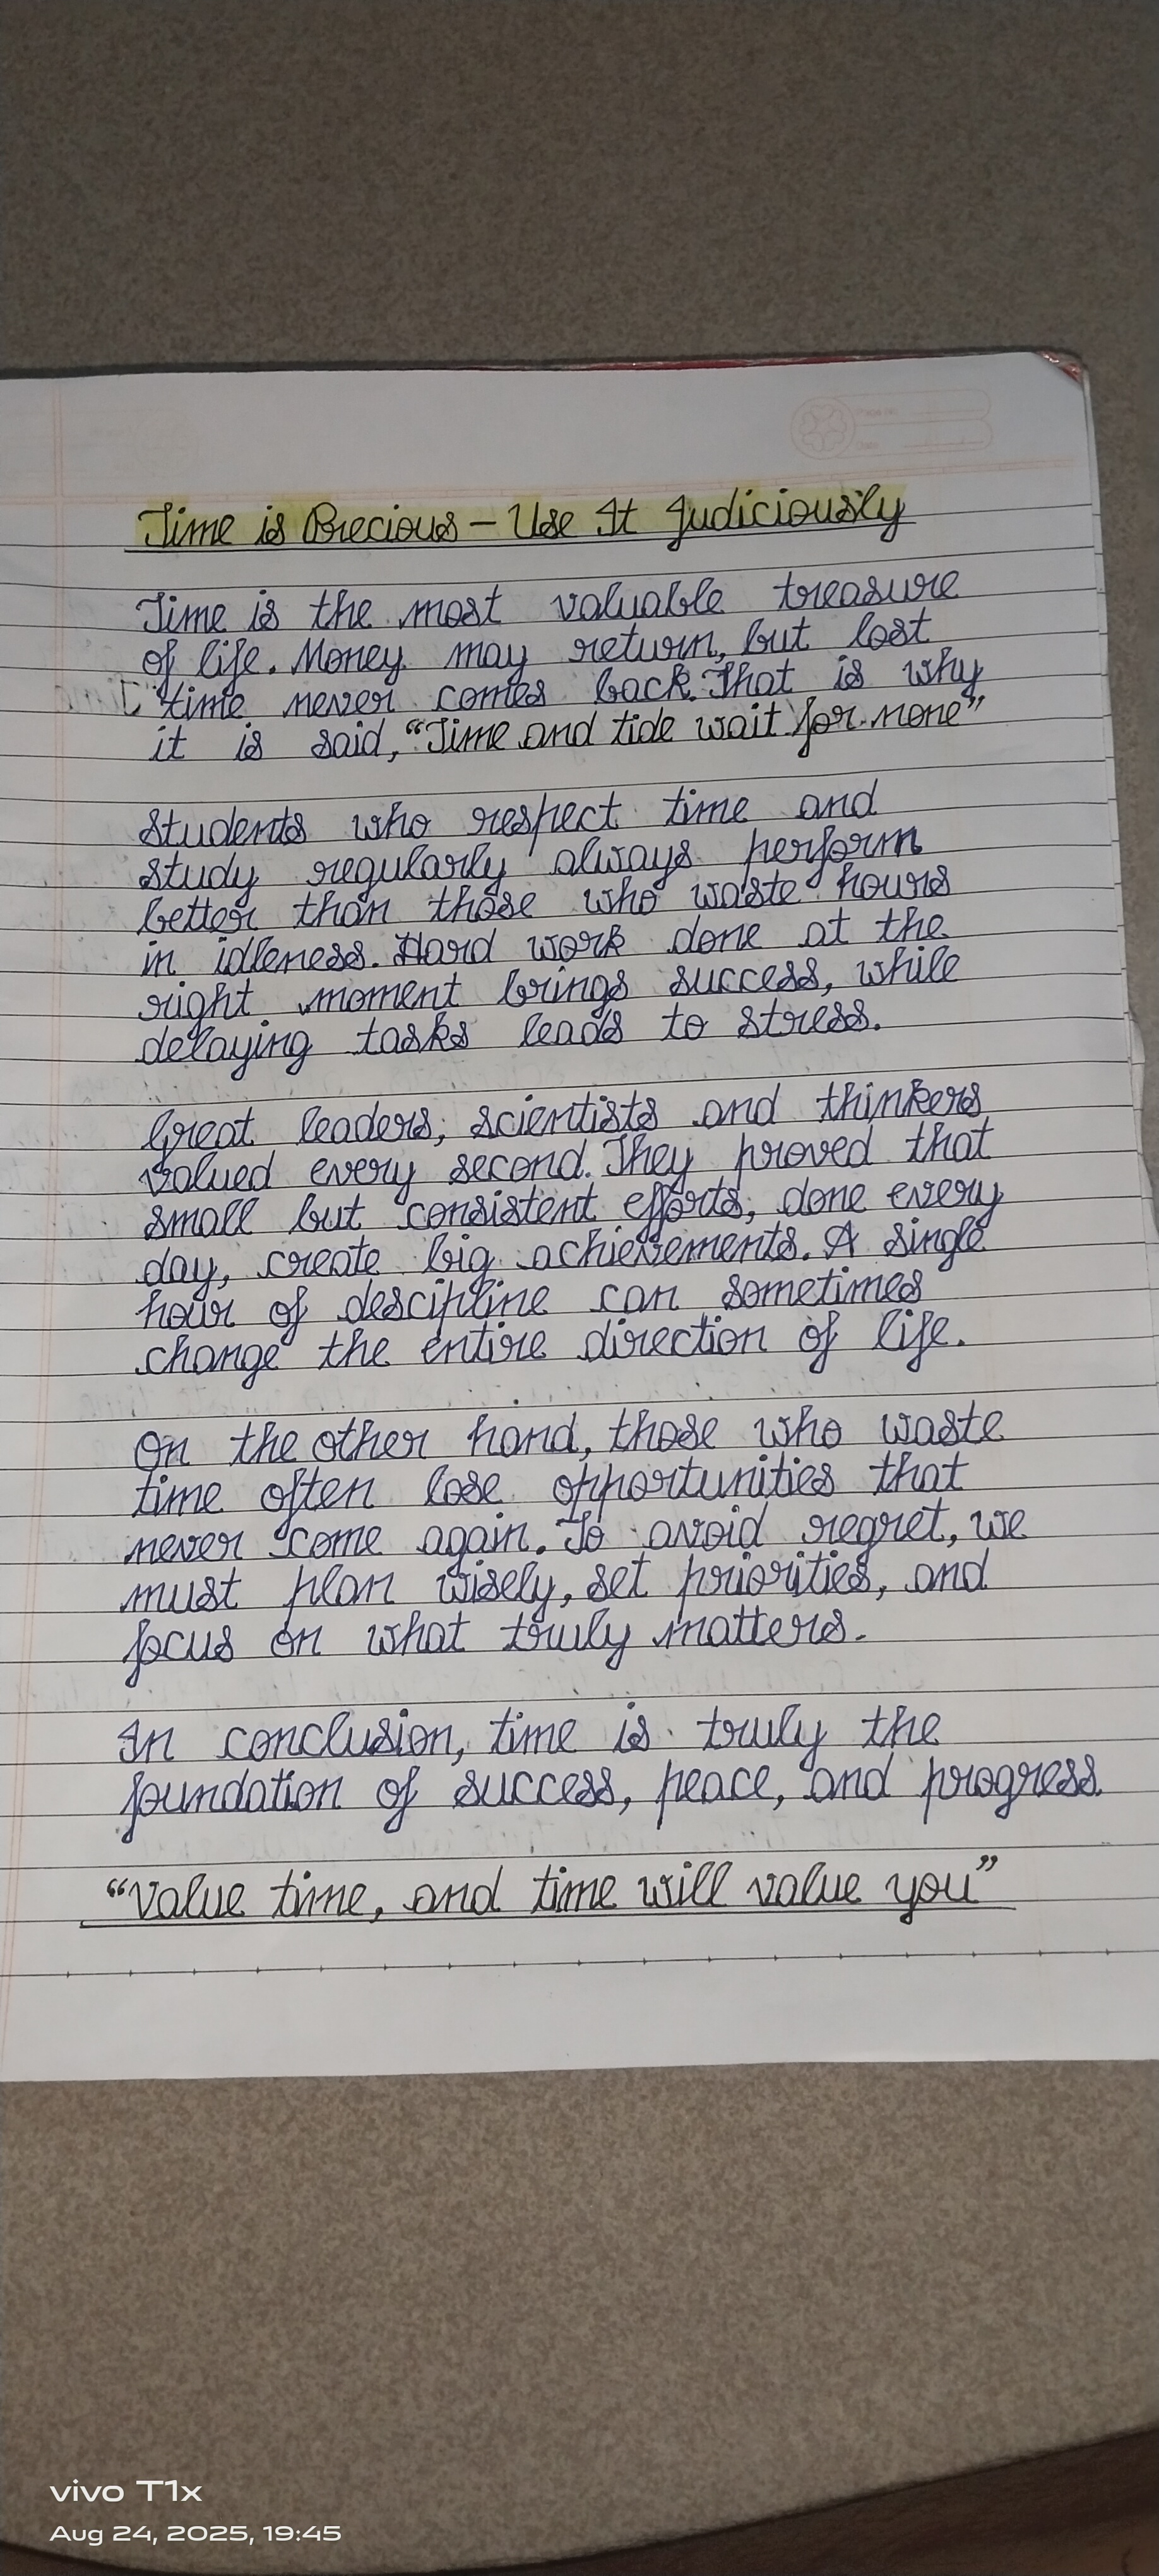 Time is Precious - Use It Judiciously
Time is the most valuable treasure
of life. Money may return, but lost
time never comes back. That is why
it is said, "Time and tide wait for none"
Students who respect time and
study regularly always perform
better than those who waste hours
in idleness. Hard work done at the
right moment brings success, while
delaying tasks leads to stress.
Great leaders, scientists and thinkers
valued every second. They proved that
small but consistent efforts, done every
day, create big achievements. A single
hour of descipline can sometimes
change the entire direction of life.
On the other hand, those who waste
time often lose opportunities that
never come again. To avoid regret, we
must plan wisely, set priorities, and
focus on what truly matters.
In conclusion, time is truly the
foundation of success, peace, and progress.
"Value time, and time will value you"
vivo T1x
Aug 24, 2025, 19:45